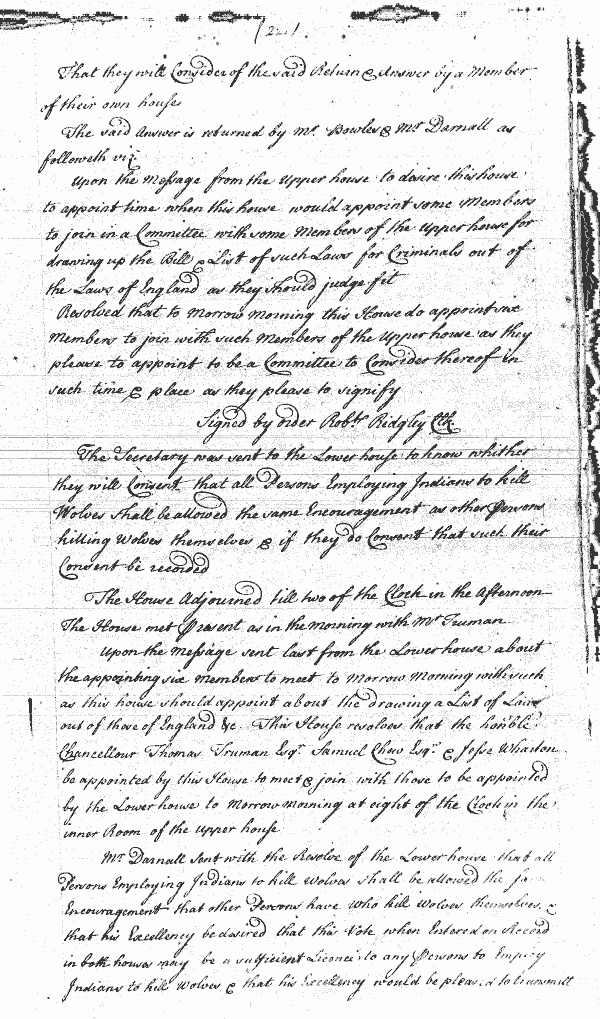 That they will Consider of the said Return & Answer by a Member
of their own house
The said Answer is returned by Mr. Bowles & Mr Darnall as
followeth viz
Upon the Message from the Upper house to desire this house
to appoint time when this house would appoint some Members
to join in a Committee with some Members of the Upper house for
drawing up the Bill & List of such Laws for Criminals out of
the Laws of England as they should judge fit
Resolved that to Morrow morning this House do appoint six
Members to join with such Members of the Upper house as they
please to appoint to be a Committee to Consider thereof in
such time & place as they please to signify
Signed by order Robt Ridgley Clk
The Secretary was sent to the Lower house to know whither
they will Consent that all Persons Employing Indians to kill
Wolves shall be allowed the same Encouragement as other Persons
killing Wolves themselves & if they do Consent that such their
Consent be recorded
The House Adjourned till two of the Clock in the Afternoon
The House met Present as in the morning with Mr Truman
Upon the Message sent last from the Lower house about
the appointing six Members to meet to Morrow Morning with such
as this house should appoint about the drawing a List of Laws
out of those of England &c. This House resolves that the honble
Chancellour Thomas Truman Esqr Samuel Chew Esqr & Jesse Wharton
be appointed by this House to meet & join with those to be appointed
by the Lower house to Morrow morning at eight of the Clock in the
inner Room of the upper house
Mr Darnall sent with the Resolve of the Lower house that all
Persons Employing Indians to kill Wolves shall be allowed the
Encouragement that other Persons have who kill Wolves themselves &
that his Excellency be desired that this Vote when Entered on Record
in both houses may be a sufficient Licence to any Persons to Employ
Indians to kill Wolves & that his Excellency would be pleased to transmitt